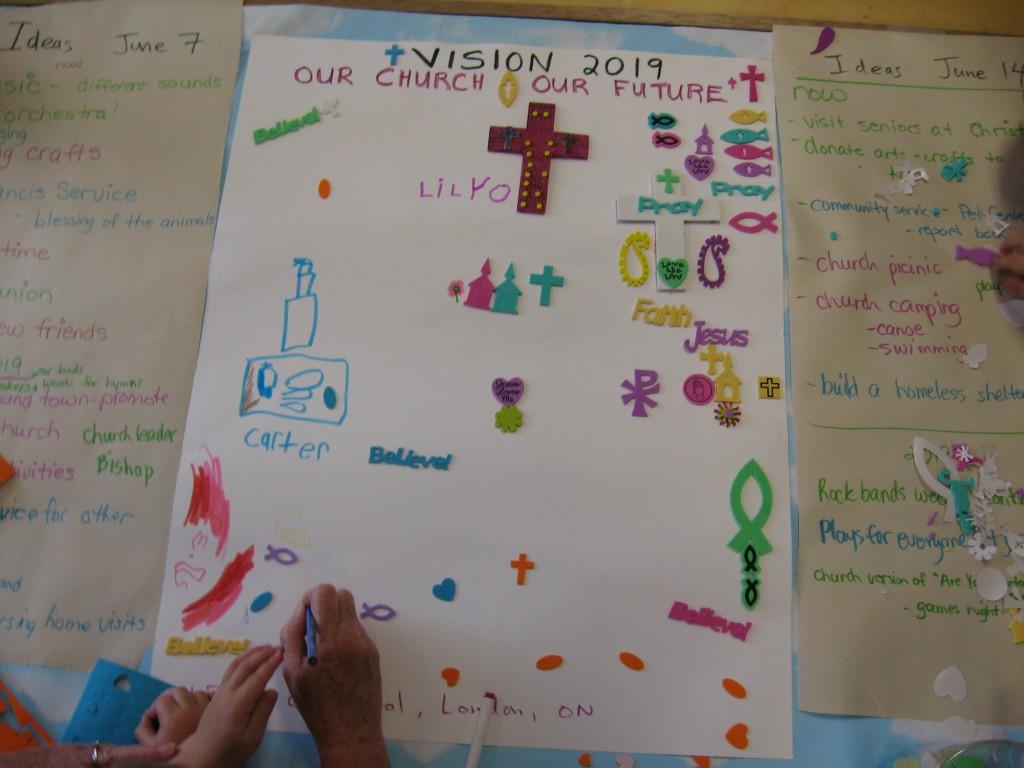 Ideas June 7
now
- different sounds
orchestra!
crafts
Service
blessing of the animals
time
friends
your bands
words for hymns
town-promote
church leader
Bishop
for other
home visits
VISION 2019
OUR CHURCH OUR FUTURE
Believe!
LiLYO
Love the Lord
Pray
Pray
Love the Lord
Faith
Jesus
Jesus Loves Me
Carter
Believe!
Believe!
Believe!
al, London, ON
Ideas June 14
now
- visit seniors at Christ
- donate arts crafts to
- community service - Pet Centre
- report back
- church picinic
plays
- church camping
- canoe
- swimming
- build a homeless shelte
Rock bands
Plays for everyone
church version of "Are Yo
- games night